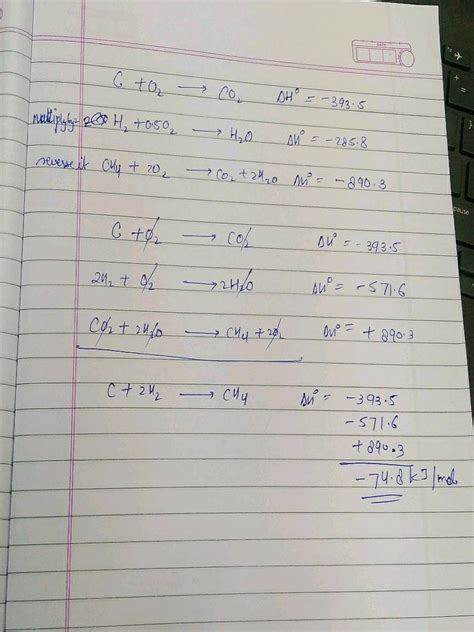 C + O₂ → CO₂ ΔH° = -393.5
multiply by 2 H₂ + 0.5O₂ → H₂O ΔH° = -285.8
reverse it CH₄ + 2O₂ → CO₂ + 2H₂O ΔH° = -890.3
C + O₂ → CO₂ ΔH° = -393.5
2H₂ + O₂ → 2H₂O ΔH° = -571.6
CO₂ + 2H₂O → CH₄ + 2O₂ ΔH° = +890.3
C + 2H₂ → CH₄ ΔH° = -393.5
-571.6
+890.3
-74.8 kJ/mol